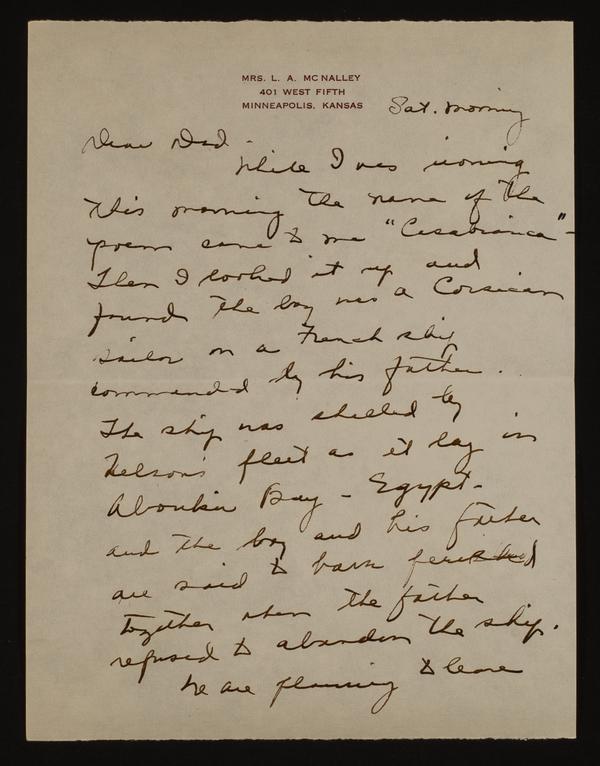 MRS. L. A. MCNALLEY
401 WEST FIFTH
MINNEAPOLIS, KANSAS
Sat. morning
Dear Dad -
While I was ironing
this morning the name of the
poem came to me "Casabianca" -
Then I looked it up and
found the boy was a Corsican
sailor on a French ship
commanded by his father.
The ship was shelled by
Nelson's fleet as it lay in
Aboukir Bay - Egypt -
and the boy and his father
are said to have perished
together when the father
refused to abandon the ship.
We are planning to leave